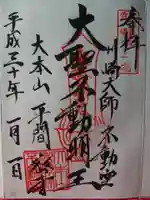 奉拝
川崎大師 不動堂
大聖不動明王
大本山 平間寺
平成三十年 一月一日